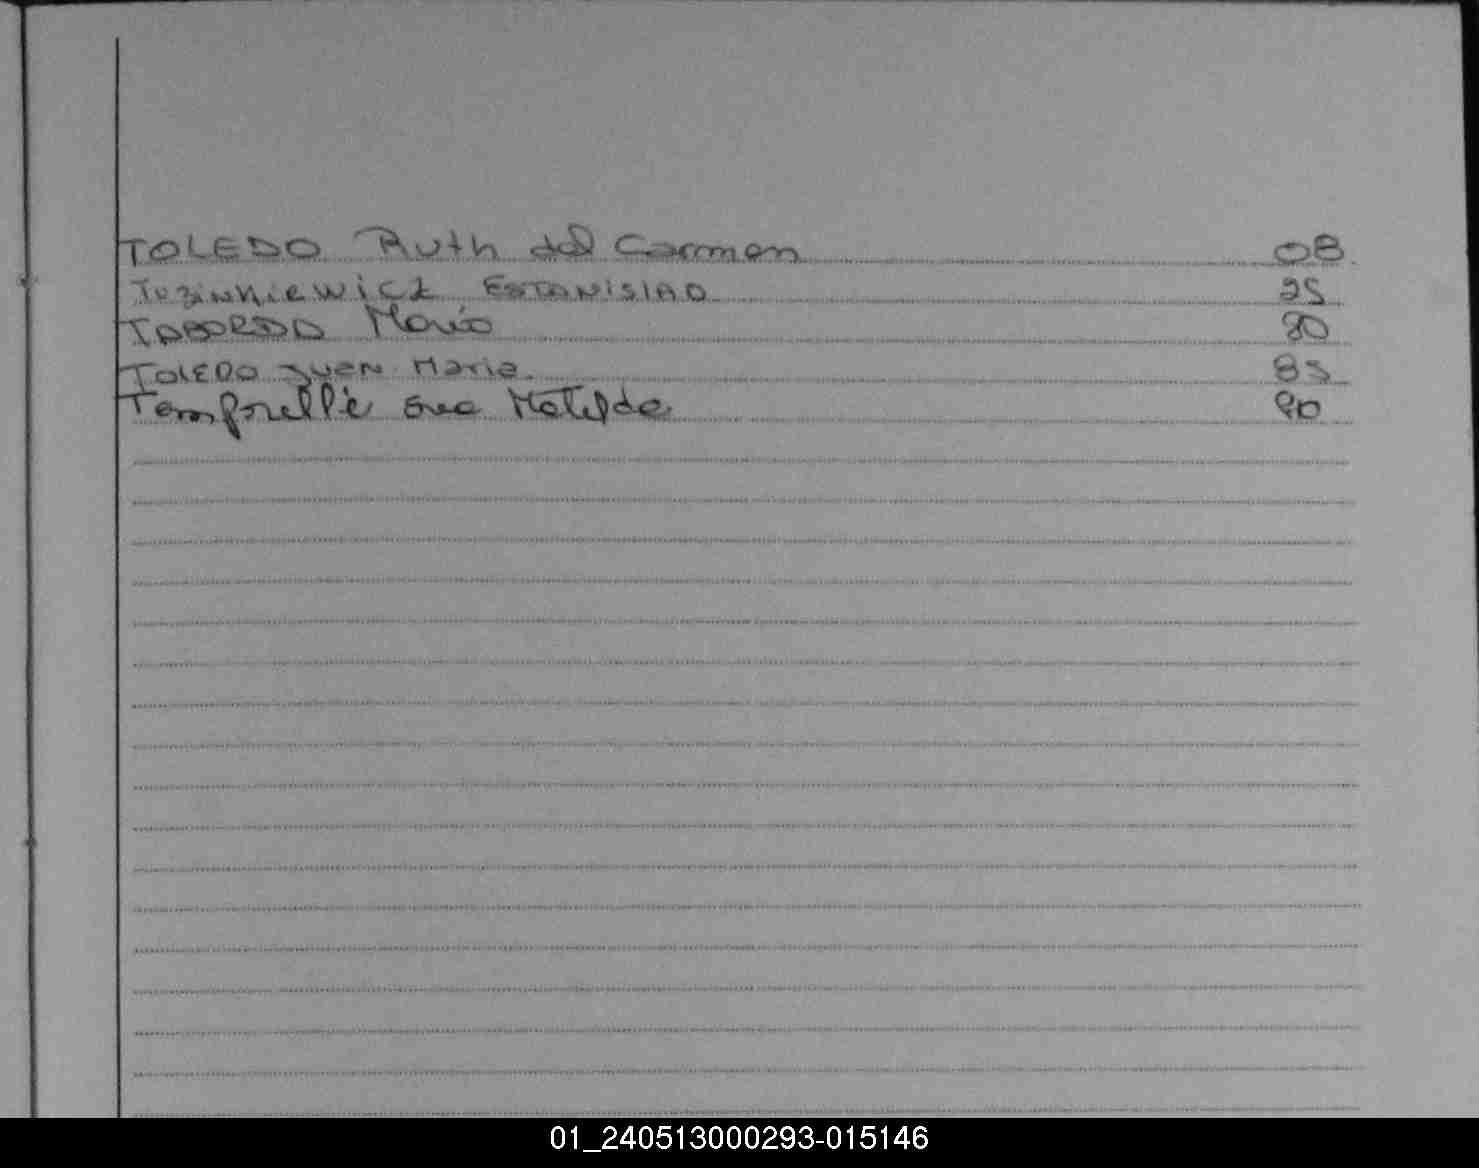 TOLEDO Ruth del Carmen 08
Tuzinkiewicz ESTANISLAO 25
TABORDA Mario 80
TOLEDO Juan Maria. 85
Ana Matilde 90
01_240513000293-015146